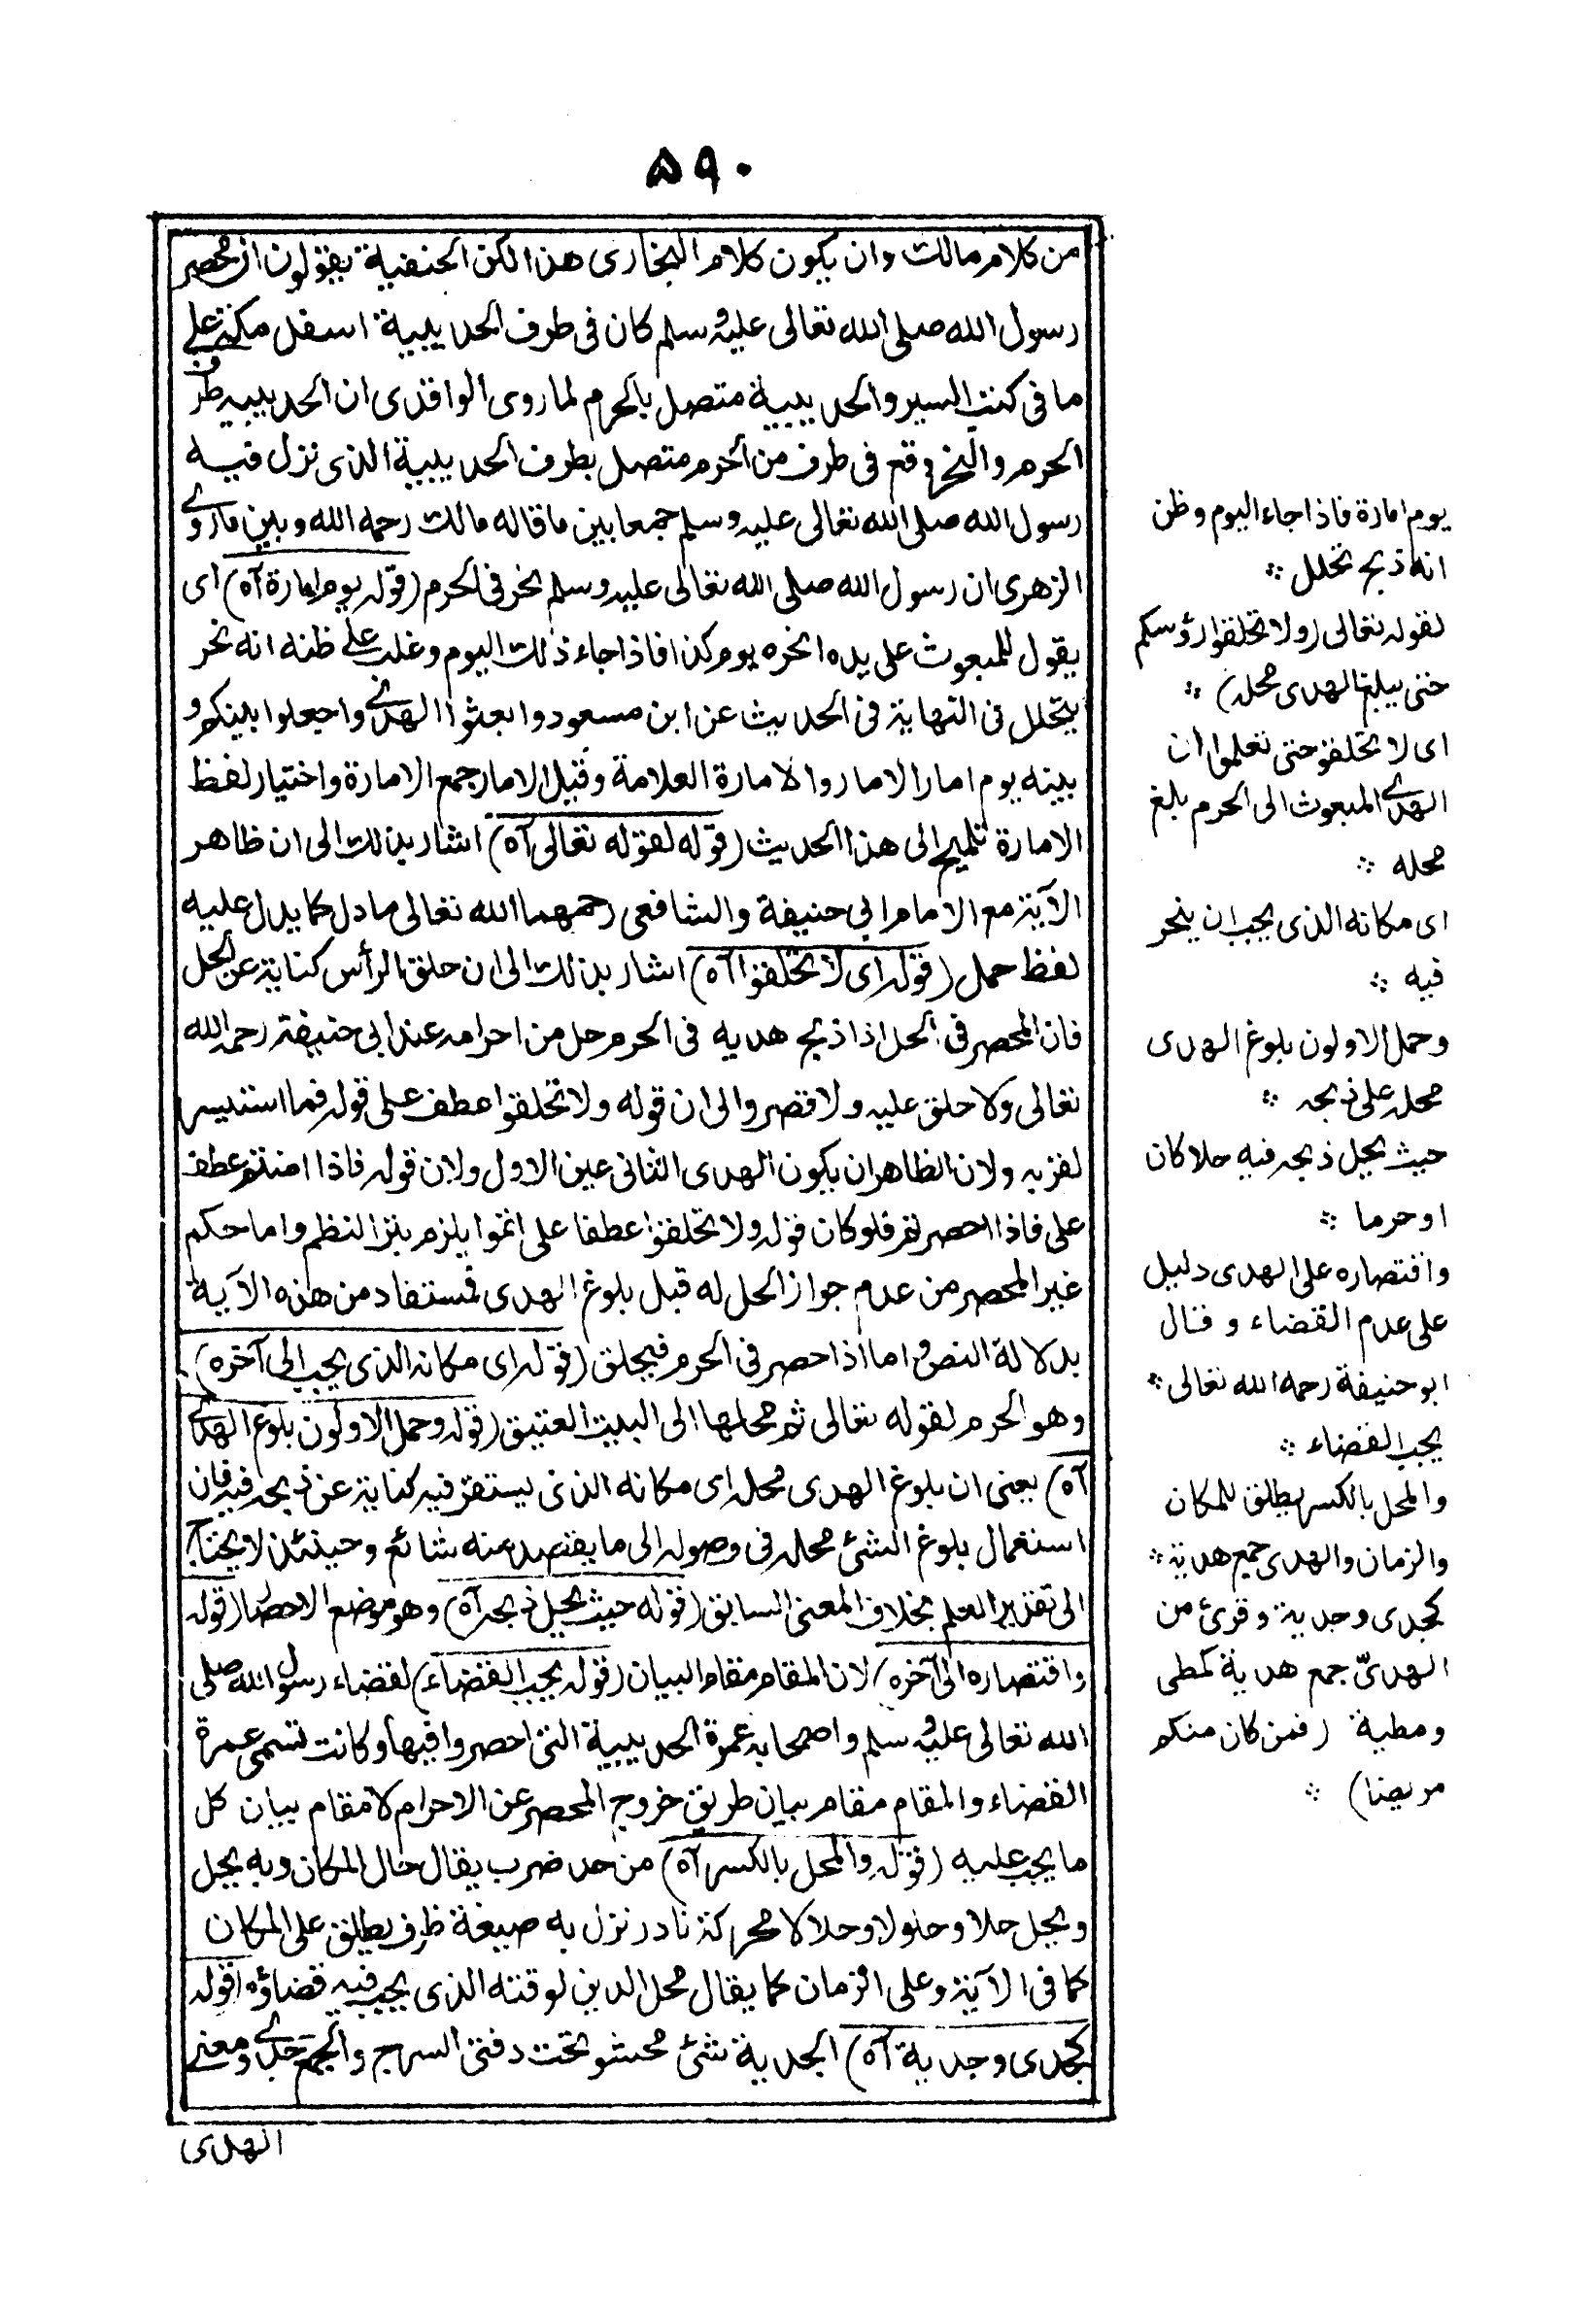 ۵۹۰
من كلام مالك وان يكون كلام البخارى هذا لكن الحنفية يقولون ان محصر
رسول الله صلى الله تعالى عليه وسلم كان فى طرف الحديبية اسفل مكة على
ما فى كتب السير والحديبية متصل بالحرم لما روى الواقدى ان الحديبيه طرف
الحرم والنحر وقع فى طرف من الحرم متصل بطرف الحديبية الذى نزل فيه
رسول الله صلى الله تعالى عليه وسلم جمعا بين ما قاله مالك رحمه الله وبين ما روى
الزهرى ان رسول الله صلى الله تعالى عليه وسلم نحر فى الحرم (قوله يوم امارة آه) اى
يقول للمبعوث على يده انحره يوم كذا فاذا جاء ذلك اليوم وغلب على ظنه انه نحر
يتحلل فى النهاية فى الحديث عن ابن مسعود وابعثوا الهدى واجعلوا بينكم و
بينه يوم امار الامار والامارة العلامة وقيل الامار جمع الامارة واختيار لفظ
الامارة تلميح الى هذا الحديث (قوله لقوله تعالى آه) اشار بذلك الى ان ظاهر
الآية مع الامام ابى حنيفة والشافعى رحمهما الله تعالى مادل كما يدل عليه
لفظ حمل (قوله اى لا تحلقوا آه) اشار بذلك الى ان حلق الرأس كناية عن الحل
فان المحصر فى الحل اذا ذبح هديه فى الحرم حل من احرامه عند ابى حنيفة رحمه الله
تعالى ولا حلق عليه ولا قصر والى ان قوله ولا تحلقوا عطف على قوله فما استيسر
لقربه ولان الظاهر ان يكون الهدى الثانى عين الاول ولان قوله فاذا امنتم عطف
على فاذا احصرتم فلو كان قوله ولا تحلقوا عطفا على اتموا يلزم بتر النظم واما حكم
غير المحصر من عدم جواز الحل له قبل بلوغ الهدى فمستفاد من هذه الآية
بدلالة النص واما اذا حصر فى الحرم فيحلق (قوله اى مكانه الذى يجب الى آخره)
وهو الحرم لقوله تعالى ثم محلها الى البيت العتيق (قوله وحمل الاولون بلوغ الهدى
آه) يعنى ان بلوغ الهدى محله اى مكانه الذى يستقر فيه كناية عن ذبحه فيه فان
استعمال بلوغ الشئ محله فى وصوله الى ما يقصد منه شائع وحينئذ لا يحتاج
الى تقدير العلم بخلاف المعنى السابق (قوله حيث يحل ذبحه آه) وهو موضع الاحصار (قوله
واقتصاره الى آخره) لان المقام مقام البيان (قوله يجب القضاء) لقضاء رسول الله صلى
الله تعالى عليه وسلم واصحابه عمرة الحديبية التى احصروا فيها وكانت تسمى عمرة
القضاء والمقام مقام بيان طريق خروج المحصر عن الاحرام لا مقام بيان كل
ما يجب عليه (قوله والمحل بالكسر آه) من حد ضرب يقال حال المكان وبه يحل
ويحل حلا وحلولا وحلالا محركة نادر نزل به صيغة ظرف يطلق على المكان
كما فى الآية وعلى الزمان كما يقال محل الدين لوقته الذى يجب فيه قضاؤه (قوله
كجدى وجدية آه) الجدية شئ محشو تحت دفتى السرج والجمع جدى ومعنى
الهدى
يوم امارة فاذا جاء اليوم وظن
انه ذبح تحلل
لقوله تعالى (ولا تحلقوا رؤسكم
حتى يبلغ الهدى محله)
اى لا تحلقو حتى تعلموا ان
الهدى المبعوث الى الحرم بلغ
محله
اى مكانه الذى يجب ان ينحر
فيه
وحمل الاولون بلوغ الهدى
محله على ذبحه
حيث يحل ذبحه فيه حلا كان
او حرما
واقتصاره على الهدى دليل
على عدم القضاء وقال
ابو حنيفة رحمه الله تعالى
يجب القضاء
والمحل بالكسر يطلق للمكان
والزمان والهدى جمع هدية
كجدى وجدية وقرئ من
الهدىّ جمع هدية كمطى
ومطية (فمن كان منكم
مريضا)